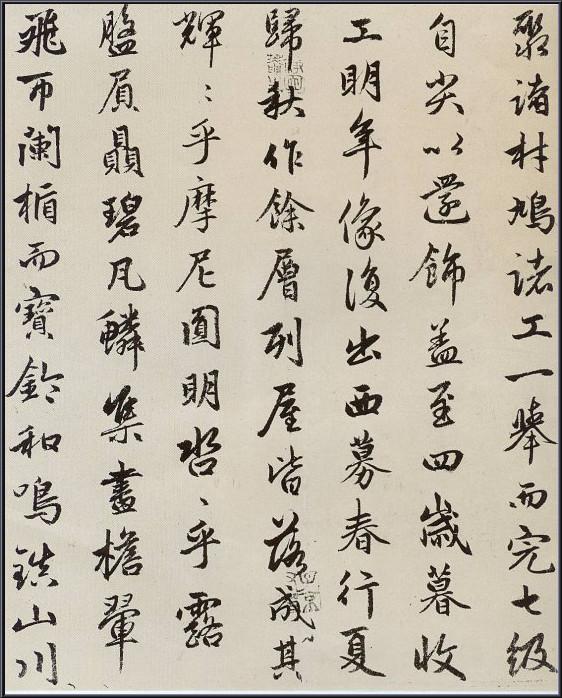 聚諸材鳩諸工一舉而完七級
自尖以還飾蓋至四歲暮收
工明年像復出西募春行夏
歸秋作餘層列屋皆落成其
輝〻乎摩尼圓明沓〻乎露
盤屓贔碧瓦鱗集畫檐翬
飛帀闌楯而寶鈴和鳴鎮山川